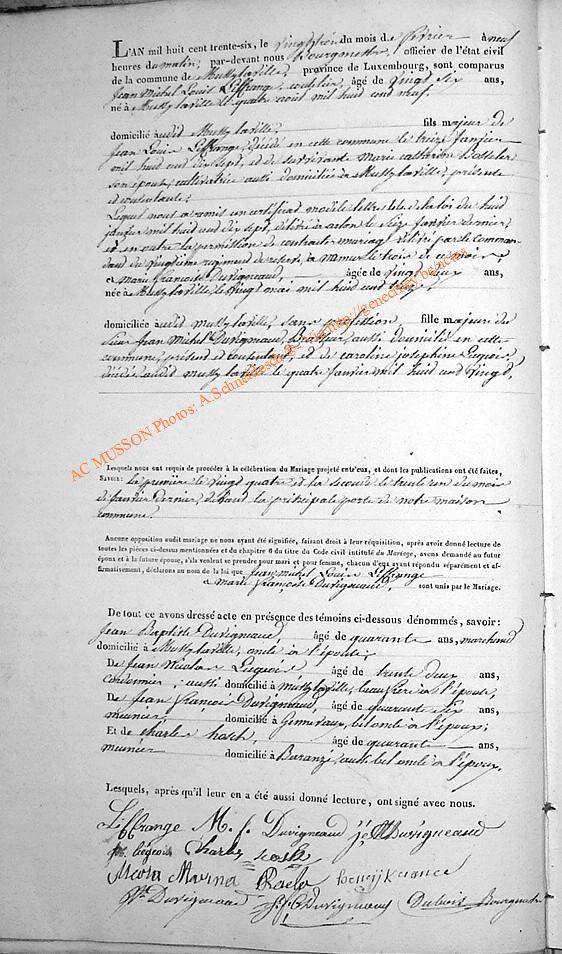 L'AN mil huit cent trente-six, le vingt trois du mois de février à neuf
heures du matin, par-devant nous Bourgmestre, officier de l'état civil
de la commune de Mussy la ville, province de Luxembourg, sont comparus
Jean Michel Louis Leffrange, coutelier, âgé de vingt six ans,
né à Mussy la ville le quatre août mil huit cent neuf.
domicilié audit Mussy la ville, fils majeur de
Jean Louis Leffrange, décédé en cette commune le treize janvier
mil huit cent dix sept, et de survivante Marie Catherine
son épouse, cultivatrice aussi domiciliée à Mussy la ville, présente
et consentante;
Lequel nous a remis un certificat modèle lettre de la loi du huit
janvier mil huit cent dix sept, délivré à arlon le seize Janvier dernier,
et en outre la permission de contracter mariage délivré par le Comman-
dant du vingtième regiment de reserve, à Namur le trois de ce mois
et marie françoise Duvigneaud, âgée de vingt deux ans,
née à Mussy la ville, le vingt mai mil huit cent treize,
domiciliée audit mussy la ville, sans profession fille majeure de
Sieur Jean Michel Duvigneaud, Brasseur, aussi domicilié en cette
commune, présent et consentant, et de caroline josephine Lequois,
décédée audit mussy la ville le quatre janvier mil huit cent vingt,
AC MUSSON Photos: A.Schneidesch @ Sudig http://genecitsy.be/actes
Lesquels nous ont requis de procéder à la célébration du Mariage projeté entr'eux, et dont les publications ont été faites,
Savoir: la première le vingt quatre et la seconde le trente un du mois
de janvier dernier, devant la principale porte de notre maison
commune.
Aucune opposition audit mariage ne nous ayant été signifiée, faisant droit à leur réquisition, après avoir donné lecture de
toutes les pièces ci-dessus mentionnées et du chapitre 6 du titre du Code civil intitulé du Mariage, avons demandé au futur
époux et à la future épouse, s'ils veulent se prendre pour mari et pour femme, chacun d'eux ayant répondu séparément et af-
firmativement, déclarons au nom de la loi que Jean michel Louis Leffrange
& marie françoise Duvigneaud, sont unis par le Mariage.
De tout ce avons dressé acte en présence des témoins ci-dessous dénommés, savoir:
Jean Baptiste Duvigneaud, âgé de quarante ans, marchand
domicilié à Mussy la ville, oncle à l'épouse,
De Jean Nicolas Lequois âgé de trente deux ans,
cordonnier, aussi domicilié à mussy la ville, beau frère à l'épouse,
De Jean François Duvigneaud, âgé de quarante six ans,
meunier, domicilié à Gomeraux, bel oncle à l'époux;
Et de charles hosch, âgé de quarante ans,
meunier domicilié à Baranzy, aussi bel oncle à l'époux,
Lesquels, après qu'il leur en a été aussi donné lecture, ont signé avec nous.
Leffrange M. f. Duvigneaud j. Duvigneaud
charles
Duvigneaud Duvigneaud Dubois Bourgmestre